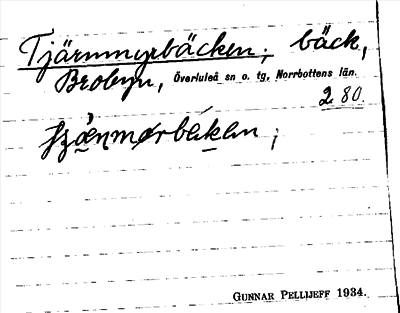 Tjärnmyrbäcken; bäck,
Brobyn, Överluleå sn o. tg, Norrbottens län.
2 80
GUNNAR PELLIJEFF 1934.